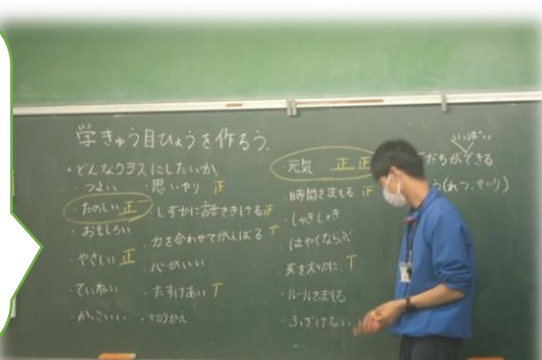 学きゅう目ひょうを作ろう。
・どんなクラスにしたいか。
・つよい
・たのしい 正
・おもしろい
・やさしい 正
・ていねい
・かっこいい
・思いやり 正
・しずかに話をきける 正
・力を合わせてがんばる T
・心がいい
・たすけあい T
・切りかえ
・元気 正 正
・時間をまもる 正
・しゃきしゃき
・はやくならぶ
・友を大切に T
・ルールをまもる
・ふざけない
いっぱい
だちができる
(れつ、せいり)